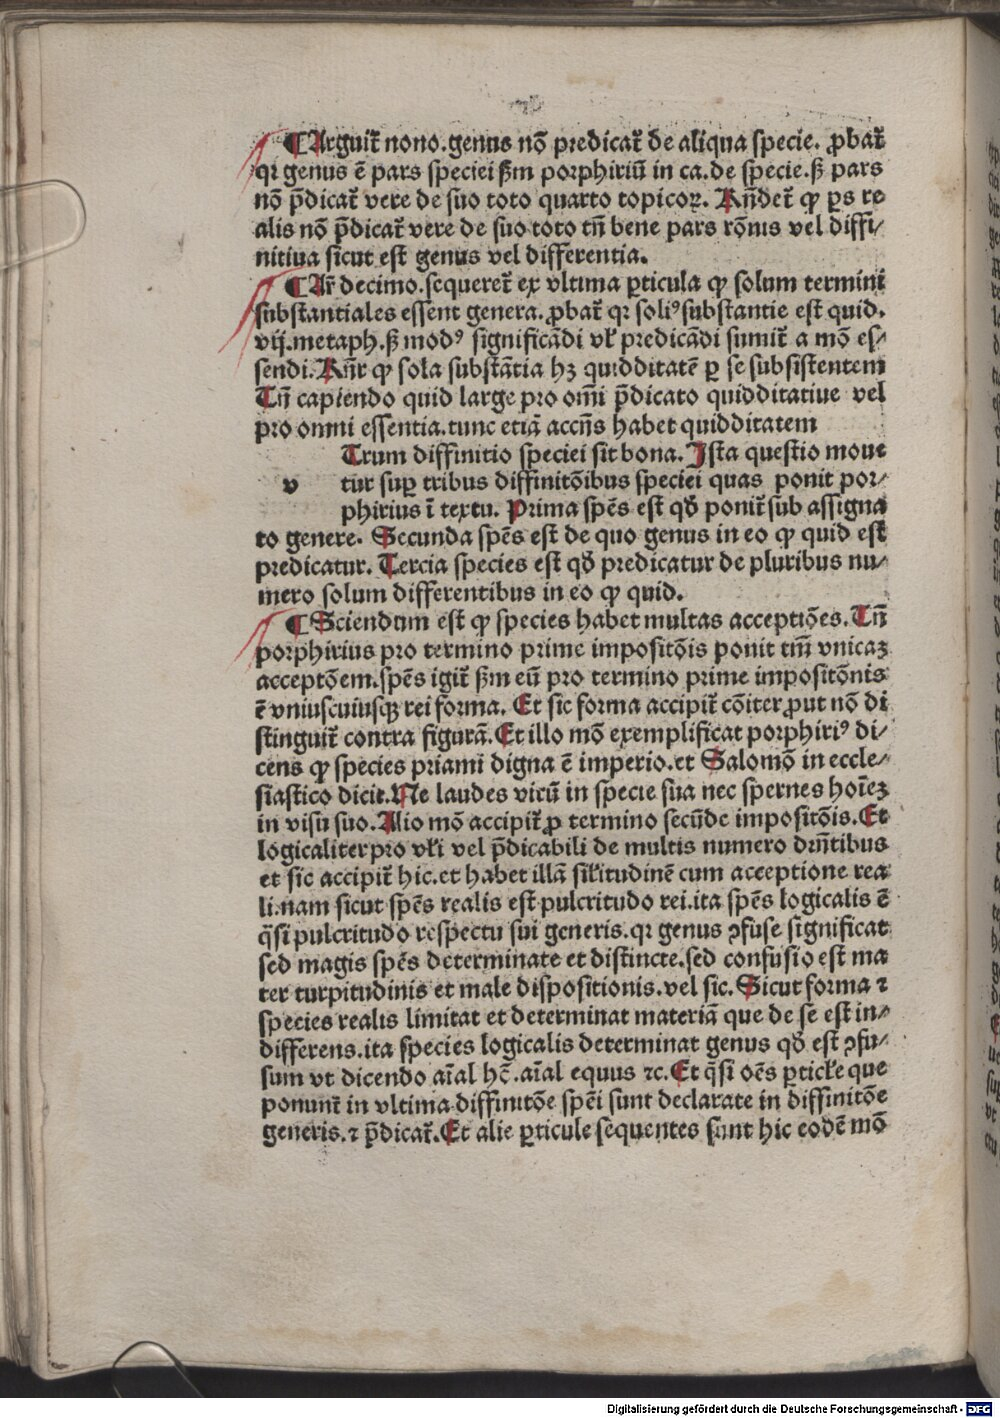 ¶ Arguit᷑ nono. genus nō predicat᷑ de aliqua specie. ꝓbat᷑
qꝛ genus ē pars speciei ẜm porphiriū in ca. de specie. ẜ pars
nō p̄dicat᷑ vere de suo toto quarto topicoꝝ. Rn̄det᷑ ꝙ ꝑs re
alis nō p̄dicat᷑ vere de suo toto tn̄ bene pars rōnis vel diffi⸗
nitiua sicut est genus vel differentia.
¶ Ar᷑ decimo. sequeret᷑ ex vltima ꝑticula ꝙ solum termini
substantiales essent genera. ꝓbat᷑ qꝛ soliꝰ substantie est quid.
vij. metaph. ẜ modꝰ significādi vl̓ predicādi sumit᷑ a mō es⸗
sendi. Rn̄r ꝙ sola substātia hꝫ quidditatē ꝑ se subsistentem
Tn̄ capiendo quid large pro om̄i p̄dicato quidditatiue vel
pro omni essentia. tunc etiā accn̄s habet quidditatem
Trum diffinitio speciei sit bona. Ista questio moue
v tur suꝑ tribus diffinitōibus speciei quas ponit por⸗
phirius ī textu. Prima spēs est qd̓ ponit᷑ sub assigna
to genere. Secunda spēs est de quo genus in eo ꝙ quid est
predicatur. Tercia species est qd̓ predicatur de pluribus nu⸗
mero solum differentibus in eo ꝙ quid.
¶ Sciendum est ꝙ species habet multas acceptiōes. Tn̄
porphirius pro termino prime impositōis ponit tm̄ vnicaꝫ
acceptōem. spēs igit᷑ ẜm eū pro termino prime impositōnis
ē vniuscuiusqꝫ rei forma. Et sic forma accipit᷑ cōiter ꝓut nō di
stinguit᷑ contra figurā. Et illo mō exemplificat porphiriꝰ di⸗
cens ꝙ species priami digna ē imperio. et Salomō in eccle⸗
siastico dicit. Ne laudes virū in specie sua nec spernes hoīeꝫ
in visu suo. Alio mō accipit᷑ ꝓ termino secūde impositōis. Et
logicaliter pro vl̓i vel p̄dicabili de multis numero drn̄tibus
et sic accipit᷑ hic. et habet illā sil̓itudinē cum acceptione rea
li. nam sicut spēs realis est pulcritudo rei. ita spēs logicalis ē
q̄si pulcritudo respectu sui generis. qꝛ genus ꝯfuse significat
sed magis spēs determinate et distincte. sed confusio est ma
ter turpitudinis et male dispositionis. vel sic. Sicut forma ⁊
species realis limitat et determinat materiā que de se est in⸗
differens. ita species logicalis determinat genus qd̓ est ꝯfu⸗
sum vt dicendo aīal hō. aīal equus ⁊c. Et q̄si oēs ꝑticl̓e que
ponunt᷑ in vltima diffinitōe spēi sunt declarate in diffinitōe
generis. ⁊ p̄dicat᷑. Et alie ꝑticule sequentes sunt hic eodē mō
Digitalisierung gefördert durch die Deutsche Forschungsgemeinschaft - DFG